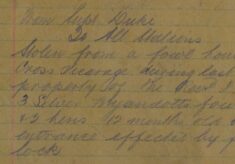 From Supt Duke
To All Stations
Stolen from a fowl hou
Cross Vicarage during last
property of the Revd
3 Silver Wyandotte fow
& 2 hens 12 months old
entrance effected by
lock